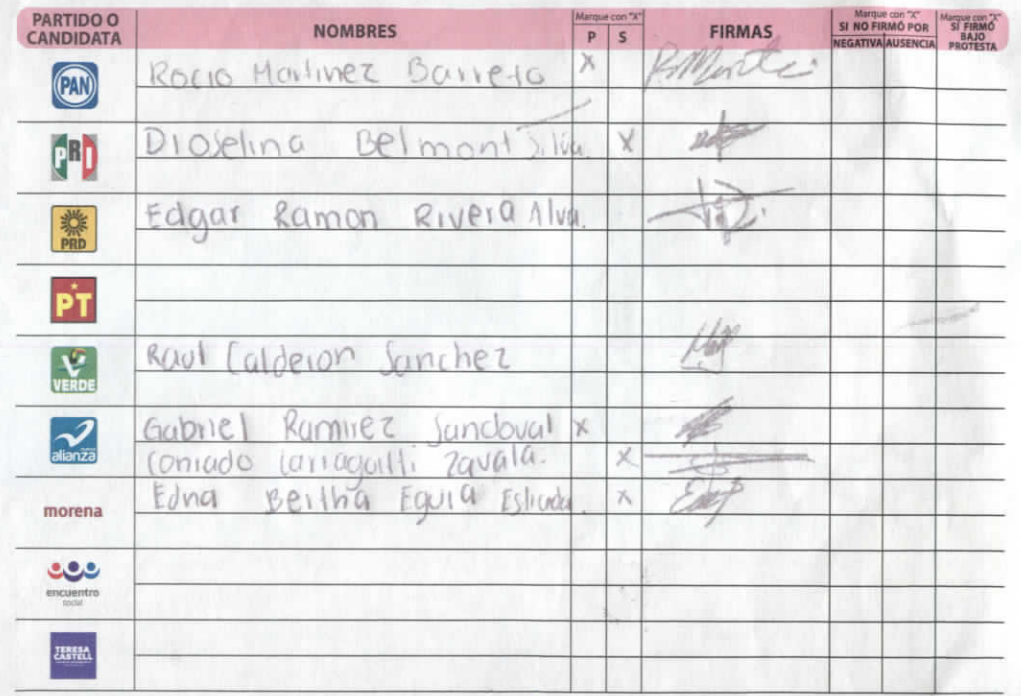 PARTIDO O CANDIDATA NOMBRES Marque con "X" P S FIRMAS Marque con "X" SI NO FIRMÓ POR NEGATIVA AUSENCIA Marque con "X" SI FIRMÓ BAJO PROTESTA
PAN Rocio Martinez Barreto X
PRI Dioselina Belmont Silva. X
PRD Edgar Ramon Rivera Alva.
PT
VERDE Raul Calderon Sanchez
alianza Gabriel Ramirez Sandoval X
Conrado Zavala. X
morena Edna Bertha Estrada X
encuentro social
TERESA CASTELL